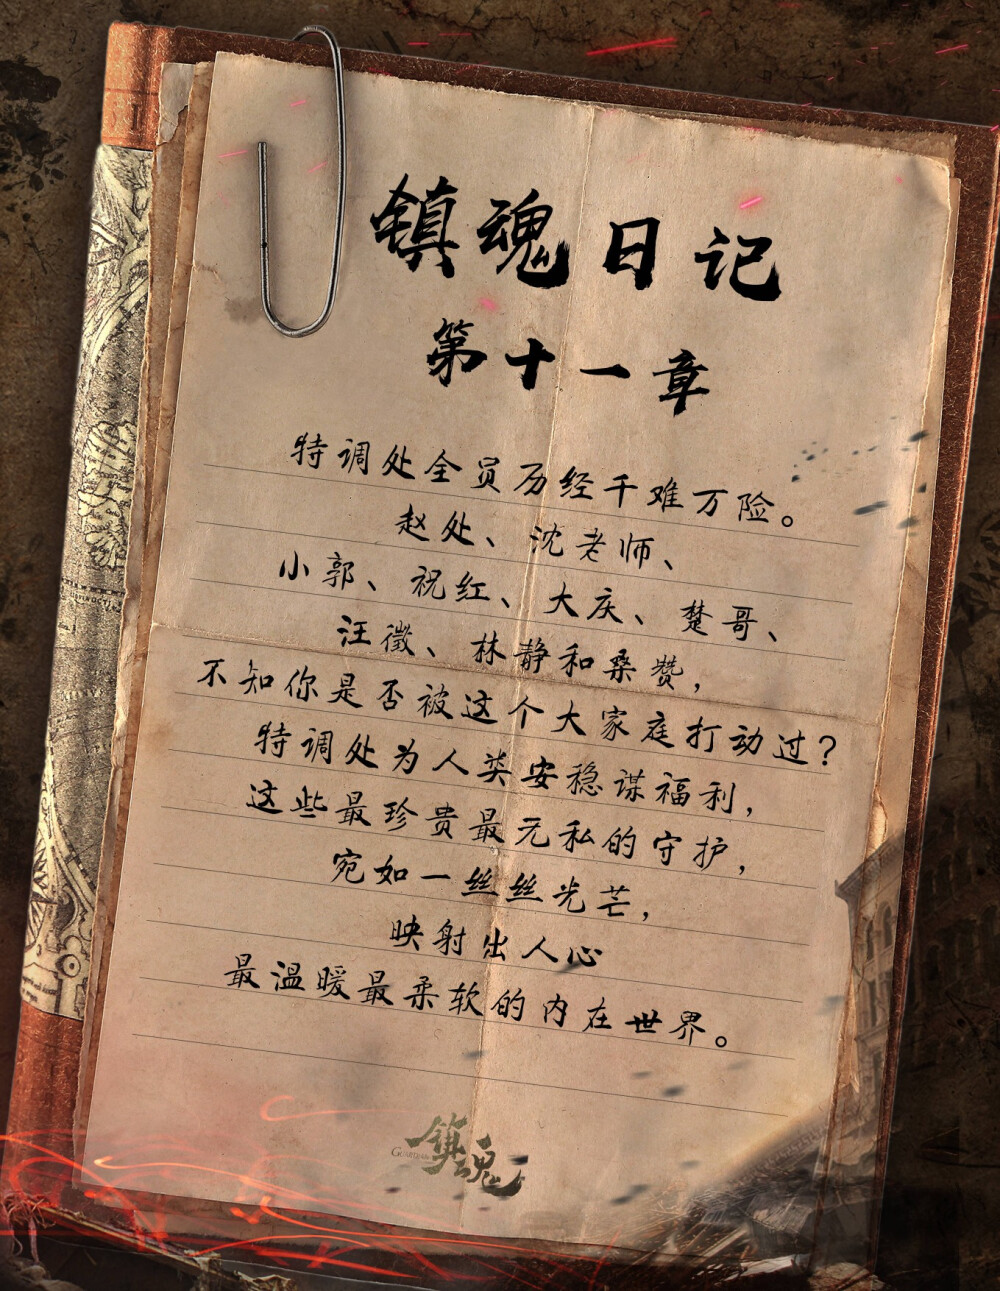 镇魂日记
第十一章
特调处全员历经千难万险。
赵处、沈老师、
小郭、祝红、大庆、楚哥、
汪徵、林静和桑赞，
不知你是否被这个大家庭打动过？
特调处为人类安稳谋福利，
这些最珍贵最无私的守护，
宛如一丝丝光芒，
映射出人心
最温暖最柔软的内在世界。
镇魂
GUARDIAN